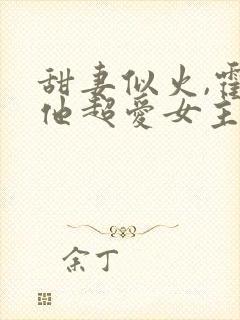 甜妻似火,霍
他超爱女主
余丁